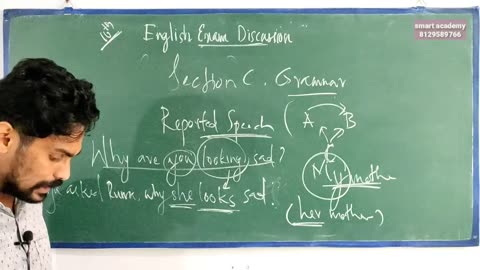 smart academy
8129589766
English Exam Discussion
Section C. Grammar
Reported Speech
A B
Why are you looking sad?
My mother
asked why she looks sad.
(her mother)